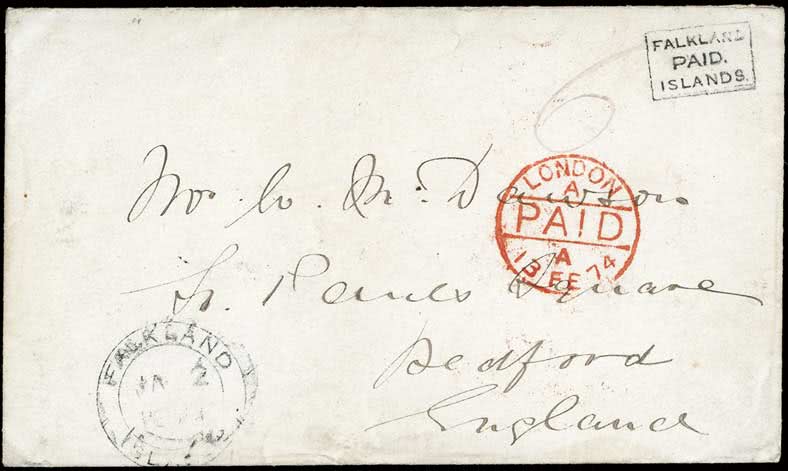 FALKLAND
PAID.
ISLANDS.
6
LONDON
A
PAID
A
13 FE 74
W. M. Dawson
St. Pauls Square
Bedford
England
FALKLAND
JA 2
ISLANDS